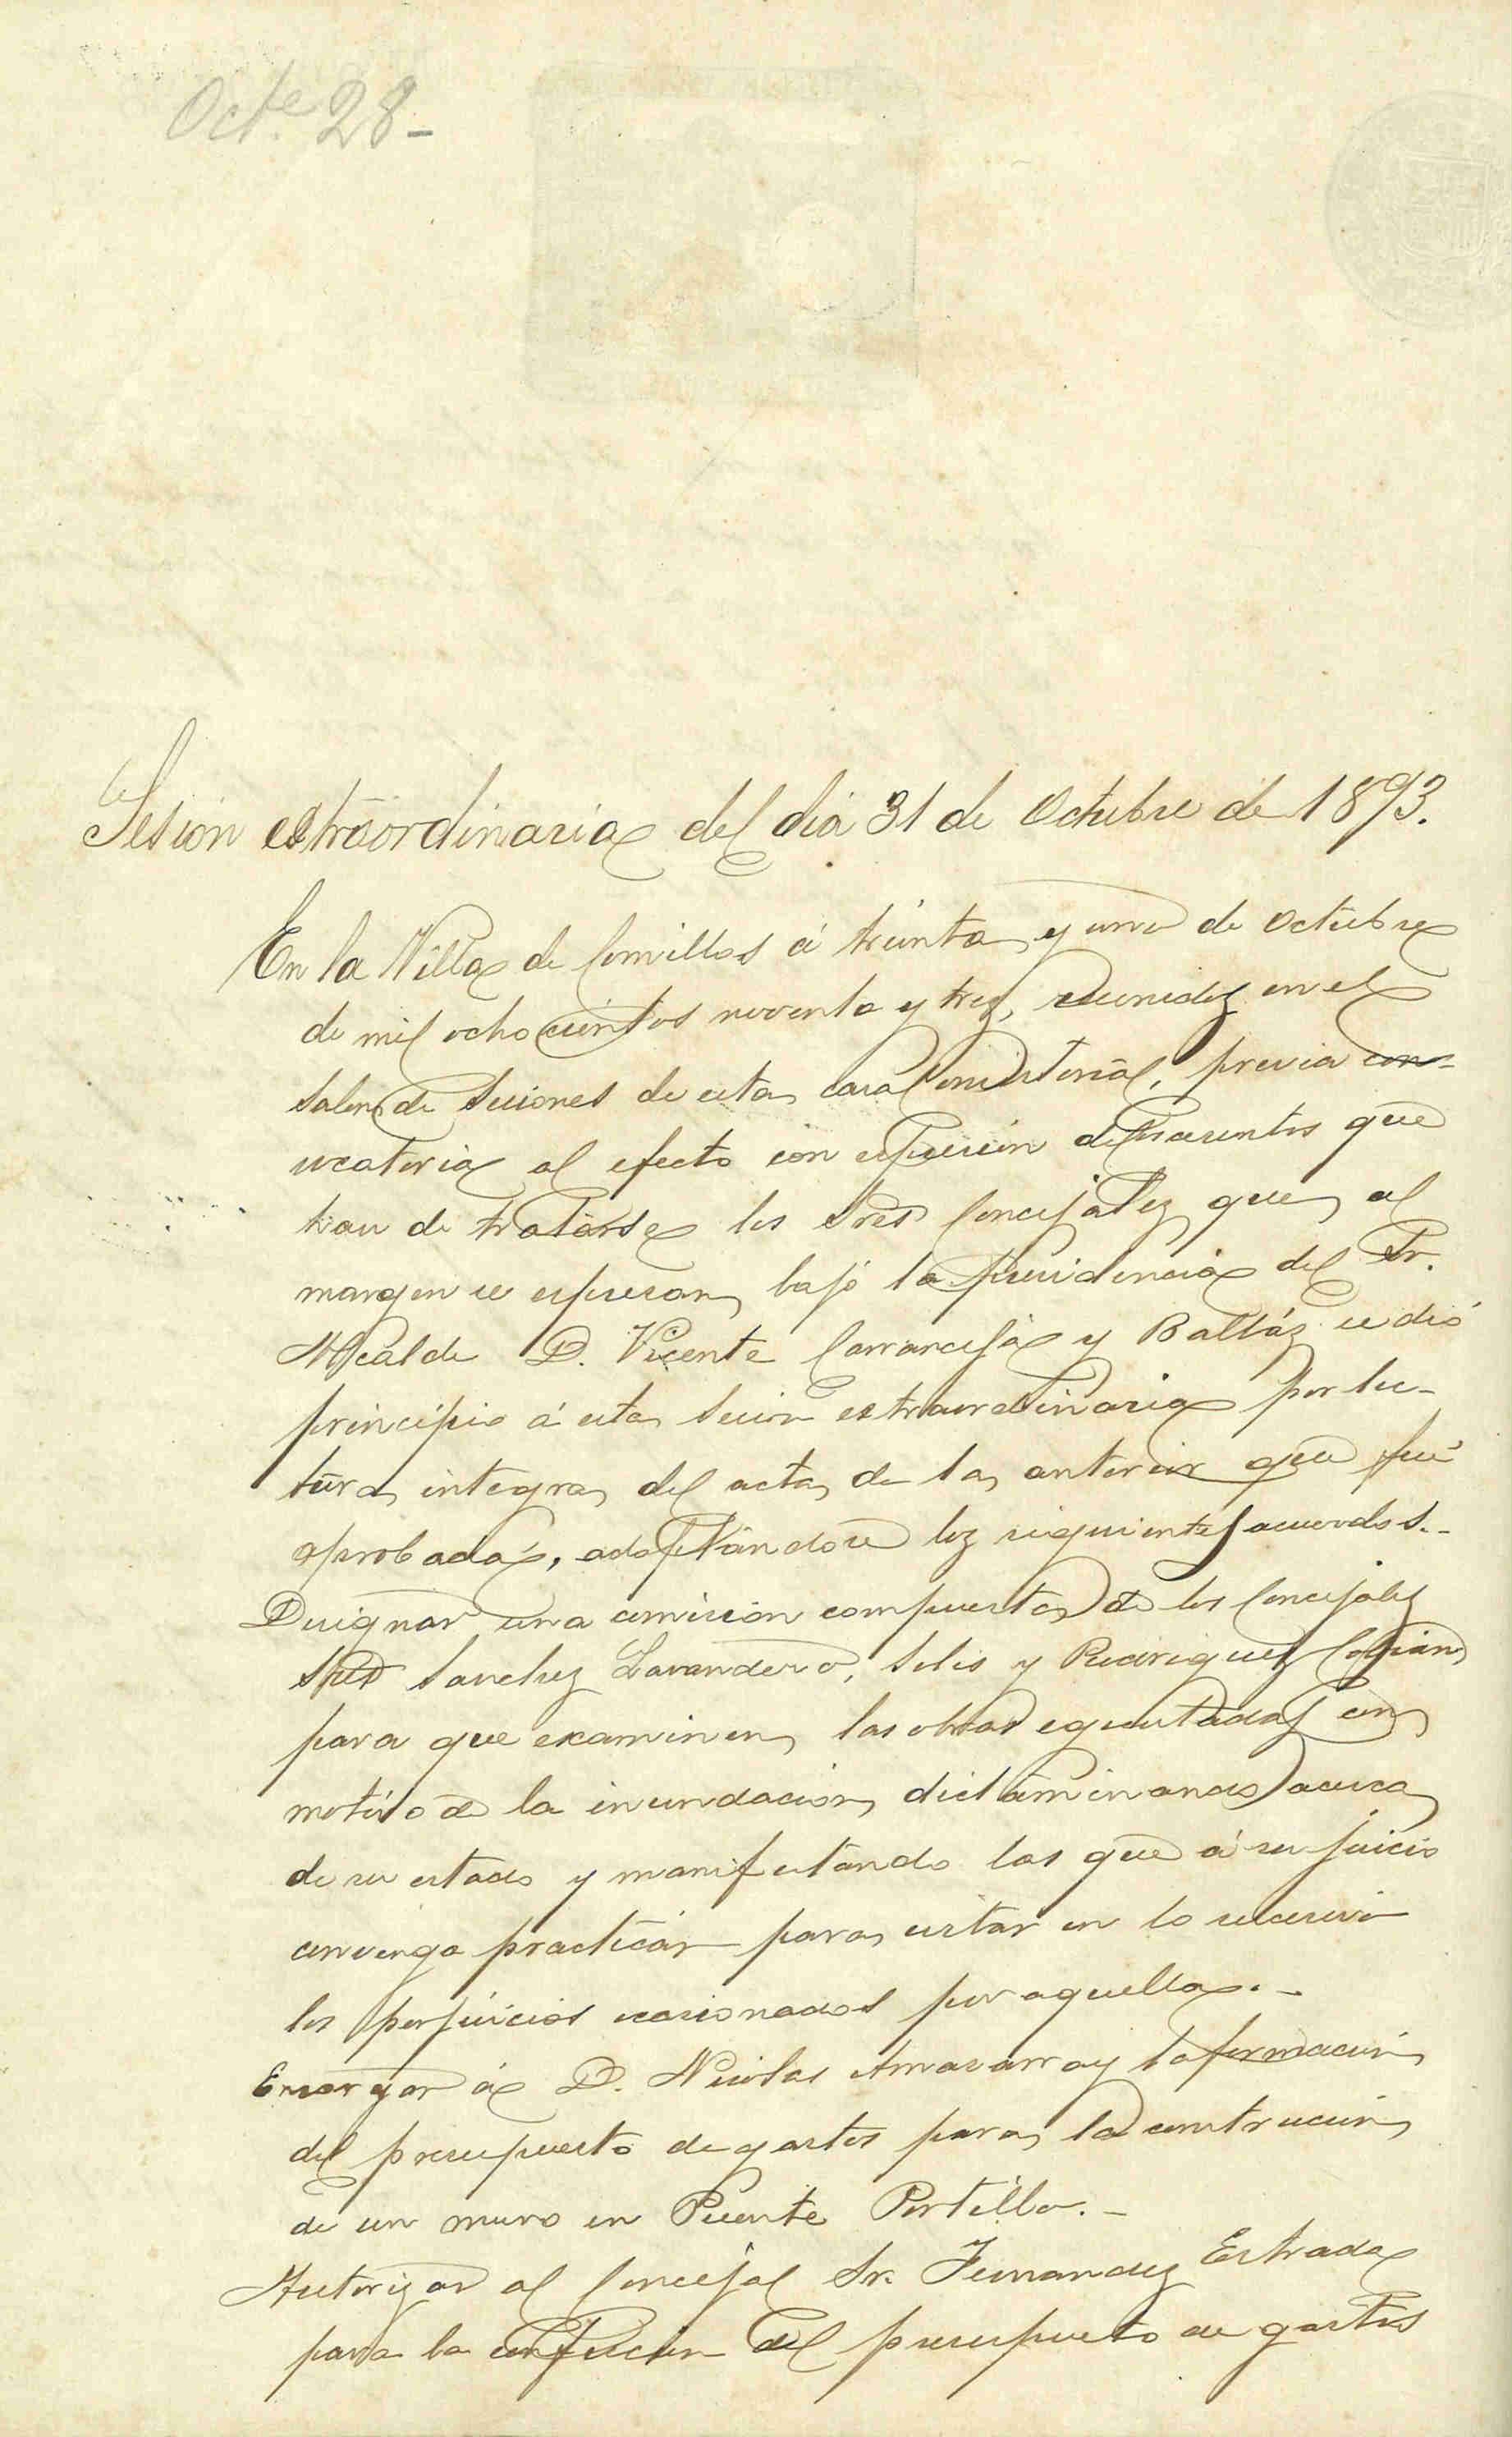 Octe. 28-
Sesion estraordinaria del dia 31 de Octubre de 1893.
En la Villa de Comillas á treinta y uno de Octubre
de mil ocho cientos noventa y tres, reunidos en el
salon de Sesiones de esta casa Consistorial, previa con-
vocatoria al efecto con espresion de los asuntos que
han de tratarse los Sres Concejales que al
margen se espresan, bajo la presidencia del Sr.
Alcalde D. Vicente Carranceja y Baltáz se dió
principio á esta Sesion estraordinaria por lec-
tura integra del acta de la anterior que fué
aprobada, adoptándose los siguientes acuerdos.-
Designar una comision compuesta de los Concejales
Sres Sanchez Lavandero, Solis y Rodriguez Cofian
para que examinen las obras egecutadas con
motivo de la inundacion, dictaminando acerca
de su estado y manifestando las que á su juicio
convenga practicar para evitar en lo sucesivo
los perjuicios ocasionados por aquella.-
Encargar á D. Nicolas Amasarray la formacion
del presupuesto de gastos para la construcion
de un muro en Puente Portillo.-
Autorizar al Concejal Sr. Fernandez Estrada
para la confeccion del presupuesto de gastos